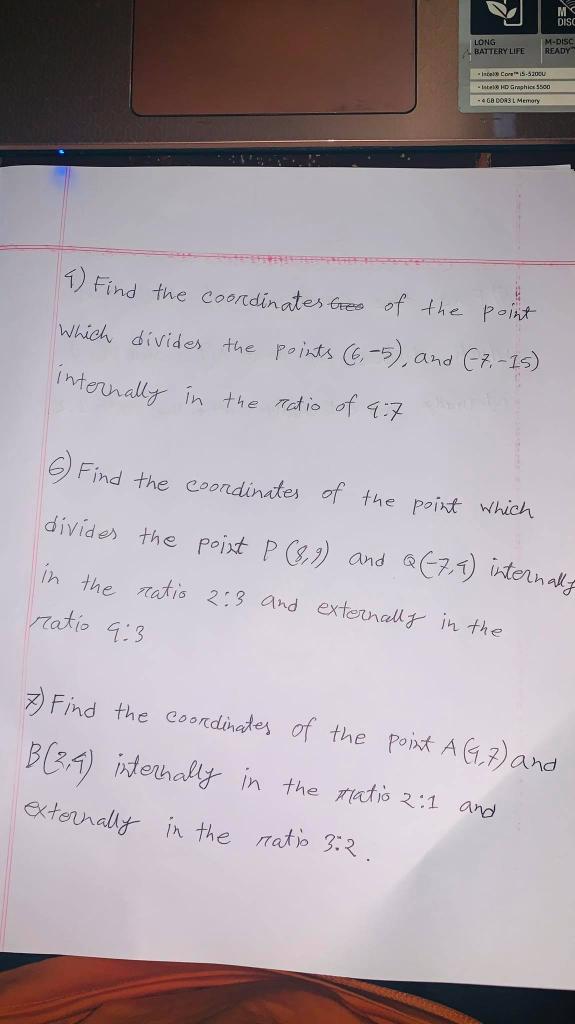 LONG
BATTERY LIFE
M
DISC
M-DISC
READY™
• Intel® Core™ i5-5200U
• Intel® HD Graphics 5500
• 4 GB DDR3 L Memory
4) Find the coordinates of the point
which divides the points (6,-5), and (-7,-15)
internally in the ratio of 4:7
6) Find the coordinates of the point which
divides the point P (8,9) and Q(-7,4) internally
in the ratio 2:3 and externally in the
ratio 4:3
7) Find the coordinates of the point A (4,7) and
B(3,4) internally in the ratio 2:1 and
externally in the ratio 3:2.